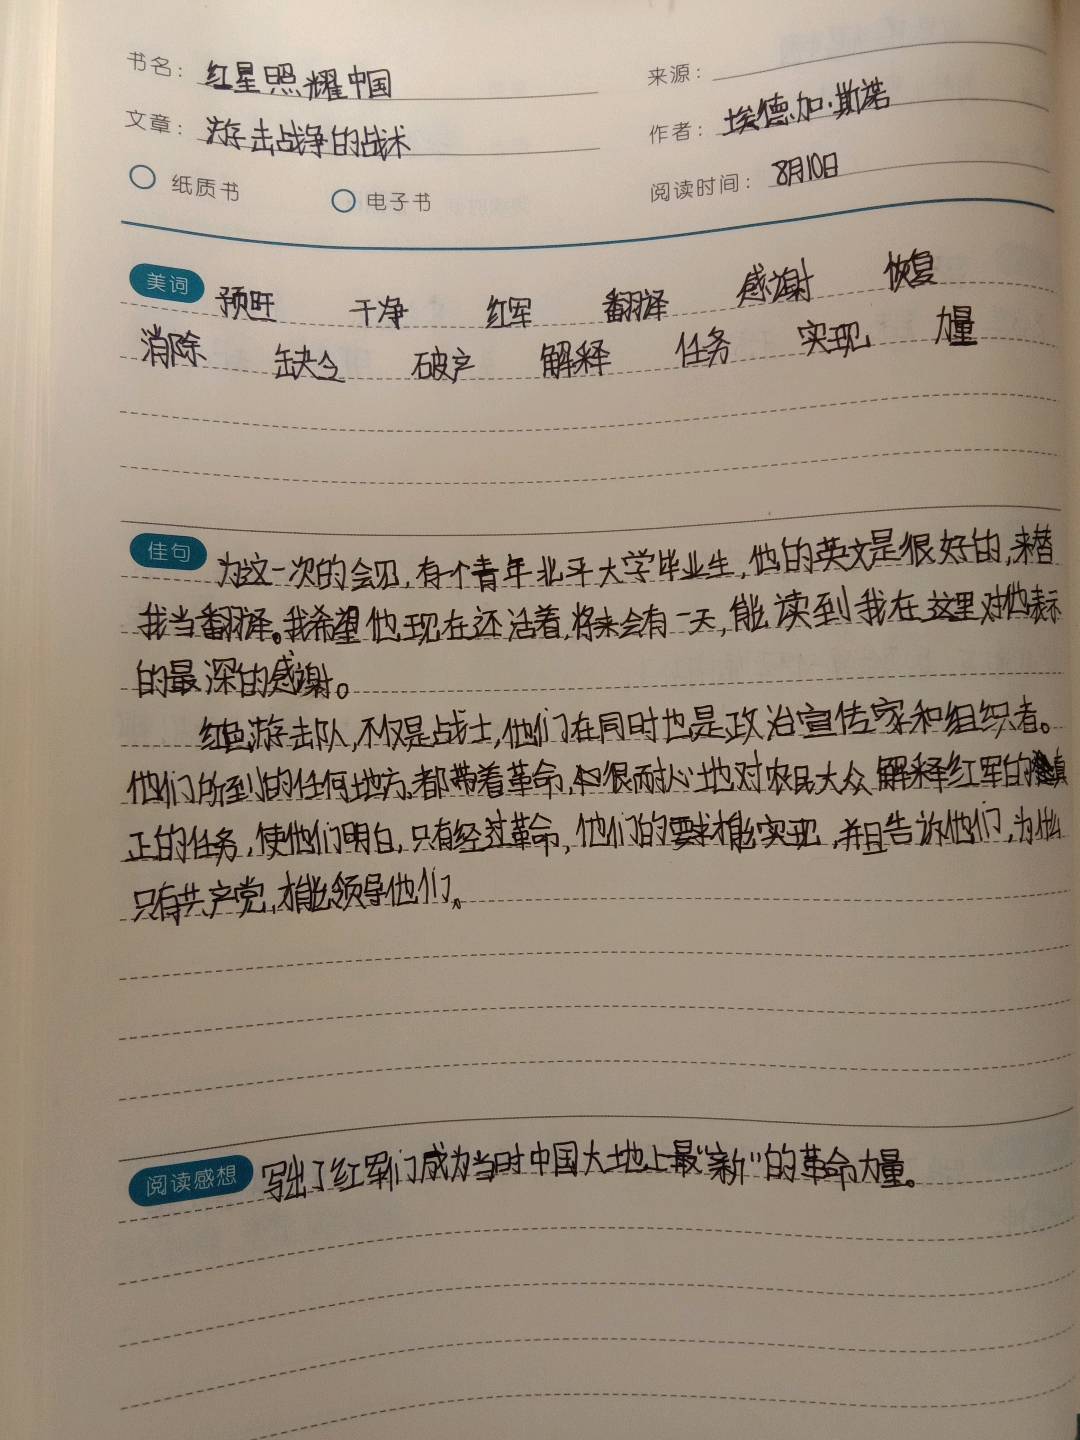 书名：红星照耀中国
来源：
文章：游击战争的战术
作者：埃德加·斯诺
纸质书 电子书
阅读时间：8月10日
美词 预旺 干净 红军 翻译 感谢 恢复
消除 缺令 破产 解释 任务 实现 力量
佳句 为这一次的会见,有个青年北平大学毕业生,他的英文是很好的,来替
我当翻译。我希望他现在还活着,将来会有一天,能读到我在这里对他表示
的最深的感谢。
红色游击队,不仅是战士,他们在同时也是政治宣传家和组织者。
他们所到的任何地方,都带着革命,很耐心地对农民大众解释红军的真
正的任务,使他们明白,只有经过革命,他们的要求才能实现,并且告诉他们,为什么
只有共产党,才能领导他们。
阅读感想 写出了红军们成为当时中国大地上最“新”的革命力量。